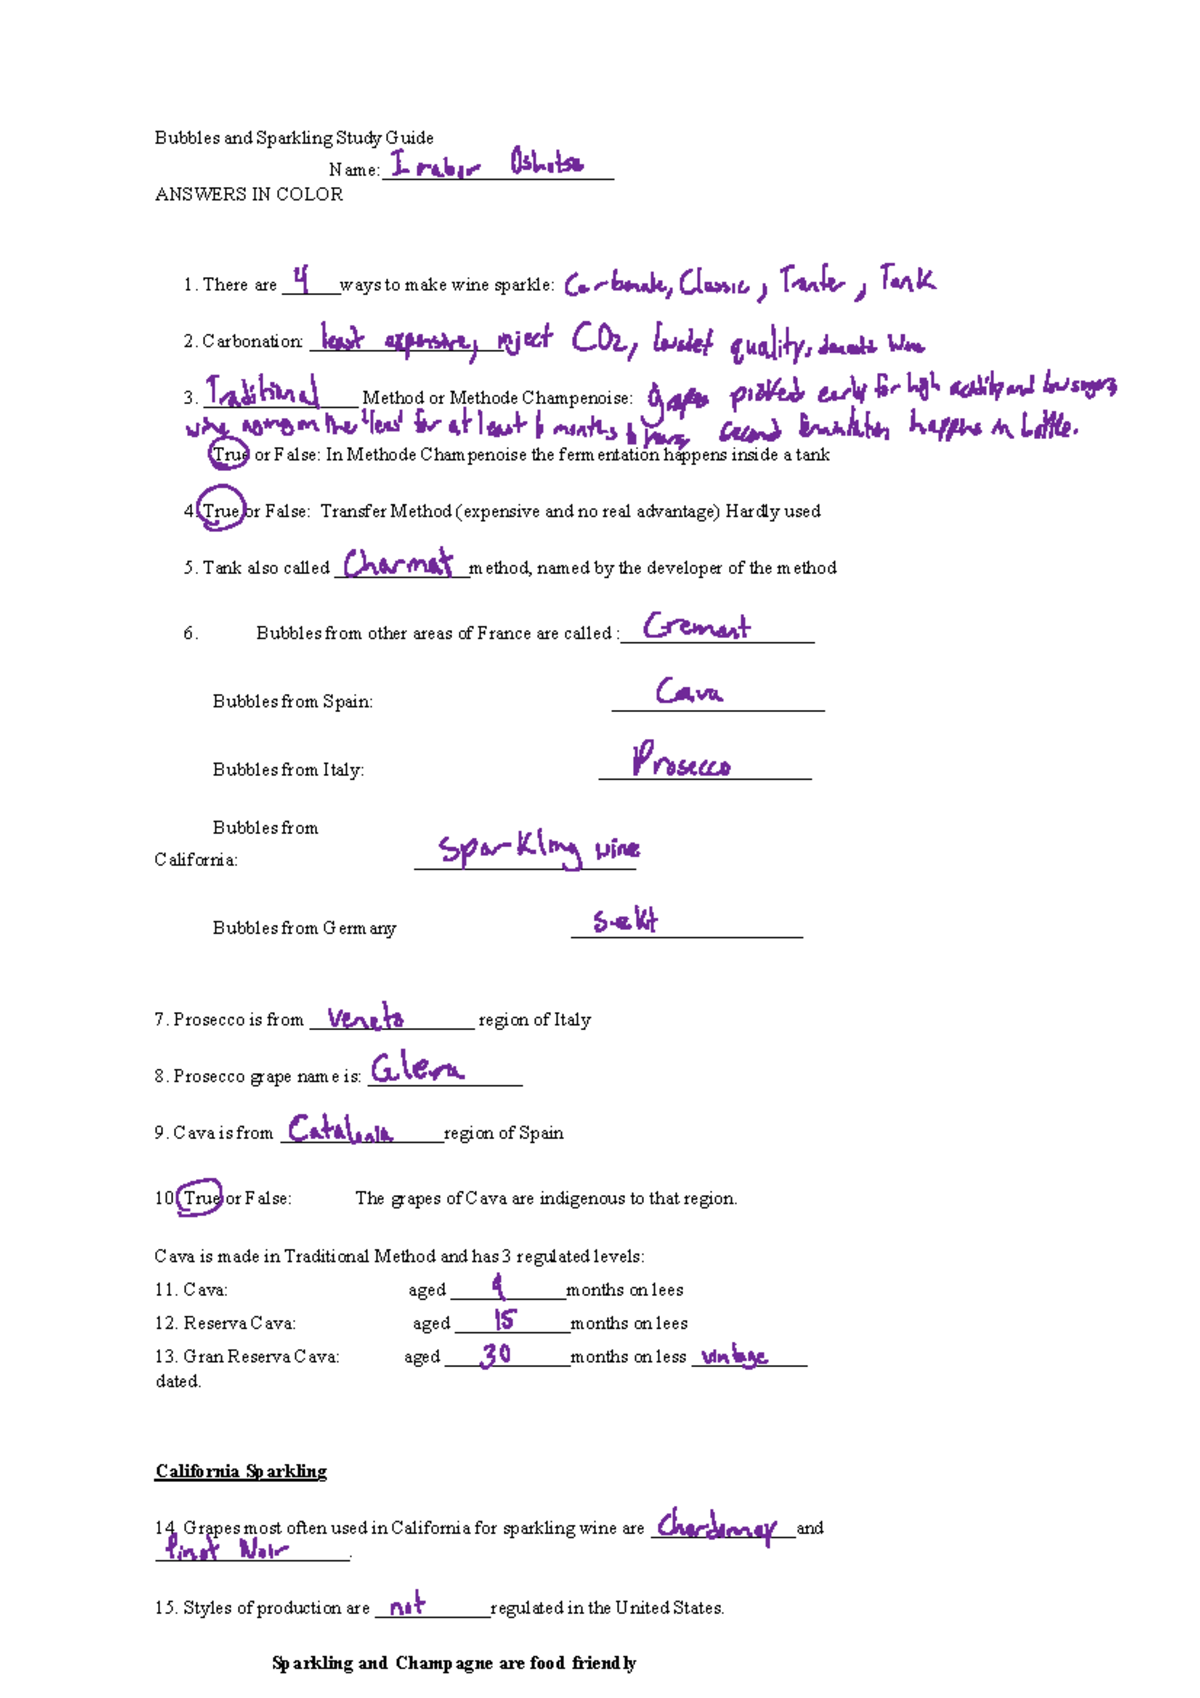 Bubbles and Sparkling Study Guide
Name: Irabor Oshotse
ANSWERS IN COLOR
1. There are 4 ways to make wine sparkle: Carbonate, Classic, Tranfer, Tank
2. Carbonation: least expensive, inject CO2, lowest quality, Wine
3. Traditional Method or Methode Champenoise: grapes picked early for high acidity and low sugars
wine on the "lees" for at least 6 months second fermentation happens in bottle.
True or False: In Methode Champenoise the fermentation happens inside a tank
4. True or False: Transfer Method (expensive and no real advantage) Hardly used
5. Tank also called Charmat method, named by the developer of the method
6. Bubbles from other areas of France are called : Cremant
Bubbles from Spain: Cava
Bubbles from Italy: Prosecco
Bubbles from
California: Sparkling wine
Bubbles from Germany Sekt
7. Prosecco is from Veneto region of Italy
8. Prosecco grape name is: Glera
9. Cava is from Catalonia region of Spain
10. True or False: The grapes of Cava are indigenous to that region.
Cava is made in Traditional Method and has 3 regulated levels:
11. Cava: aged 9 months on lees
12. Reserva Cava: aged 15 months on lees
13. Gran Reserva Cava: aged 30 months on less vintage
dated.
California Sparkling
14. Grapes most often used in California for sparkling wine are Chardonnay and
Pinot Noir.
15. Styles of production are not regulated in the United States.
Sparkling and Champagne are food friendly